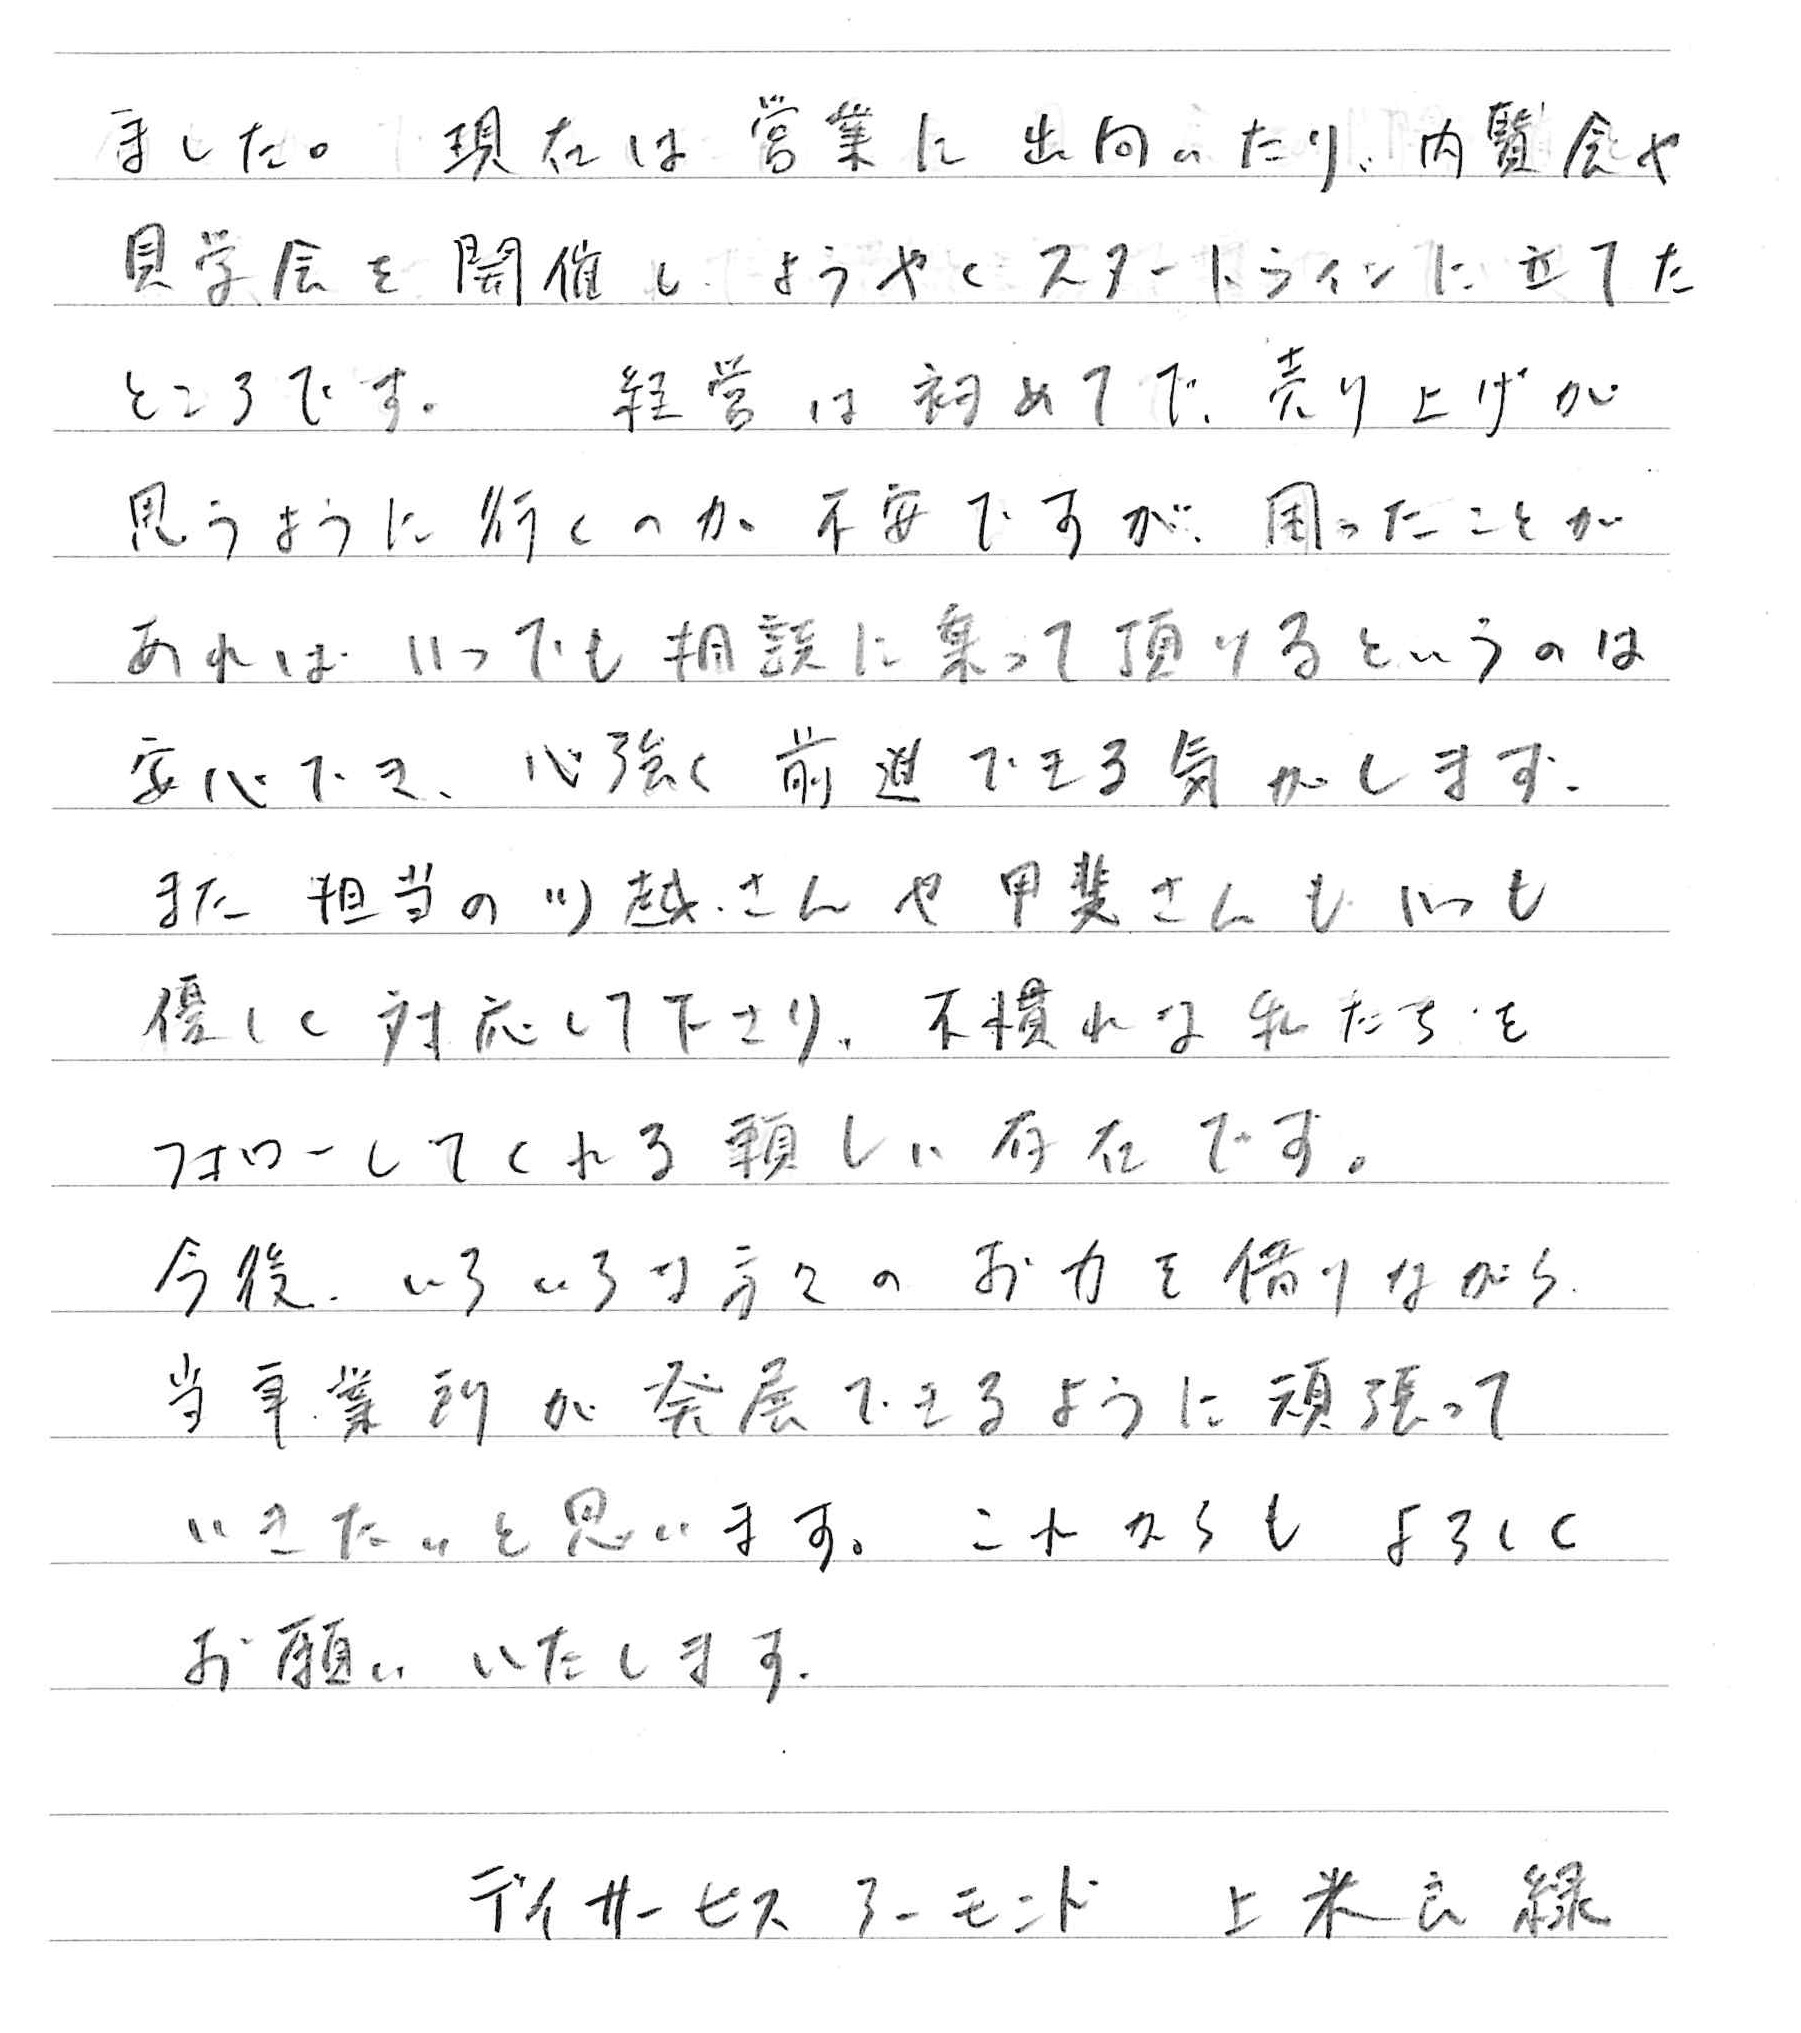 ました。 現在は営業に出向いたり、内覧会や
見学会を開催し、ようやくスタートラインに立てた
ところです。 経営は初めてで、売り上げが
思うように行くのか不安ですが、困ったことが
あればいつでも相談に乗って頂けるというのは
安心でき、心強く前進できる気がします。
また担当の川越さんや甲斐さんもいつも
優しく対応して下さり、不慣れな私たちを
フォローしてくれる頼しい存在です。
今後、いろいろな方々のお力を借りながら、
当事業所が発展できるように頑張って
いきたいと思います。これからもよろしく
お願いいたします。
デイサービス アーモンド 上米良 緑